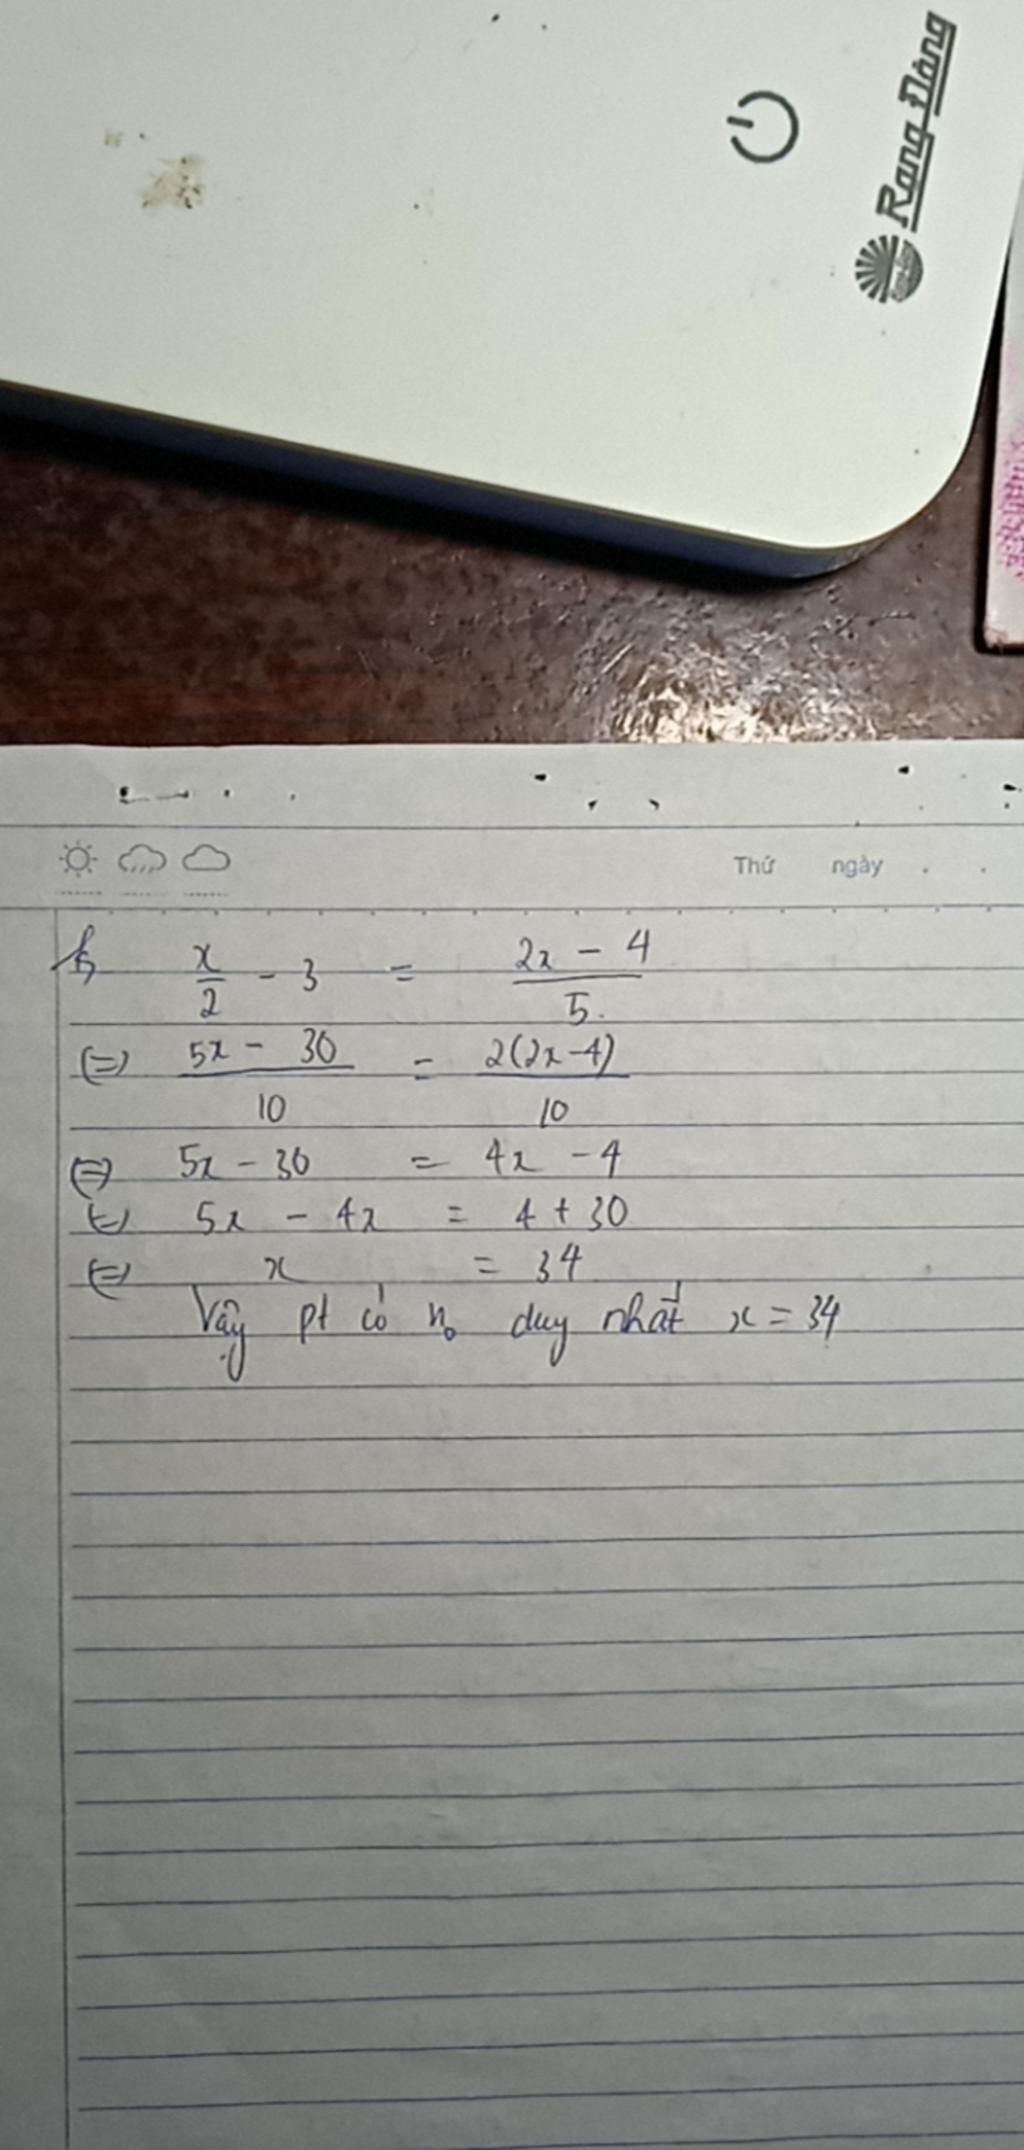 Rạng Đông
Thứ ngày
x/2 - 3 = (2x - 4)/5.
(=) (5x - 30)/10 = 2(2x-4)/10
(=) 5x - 30 = 4x - 4
(=) 5x - 4x = 4 + 30
(=) x = 34
Vậy pt có n₀ duy nhất x = 34